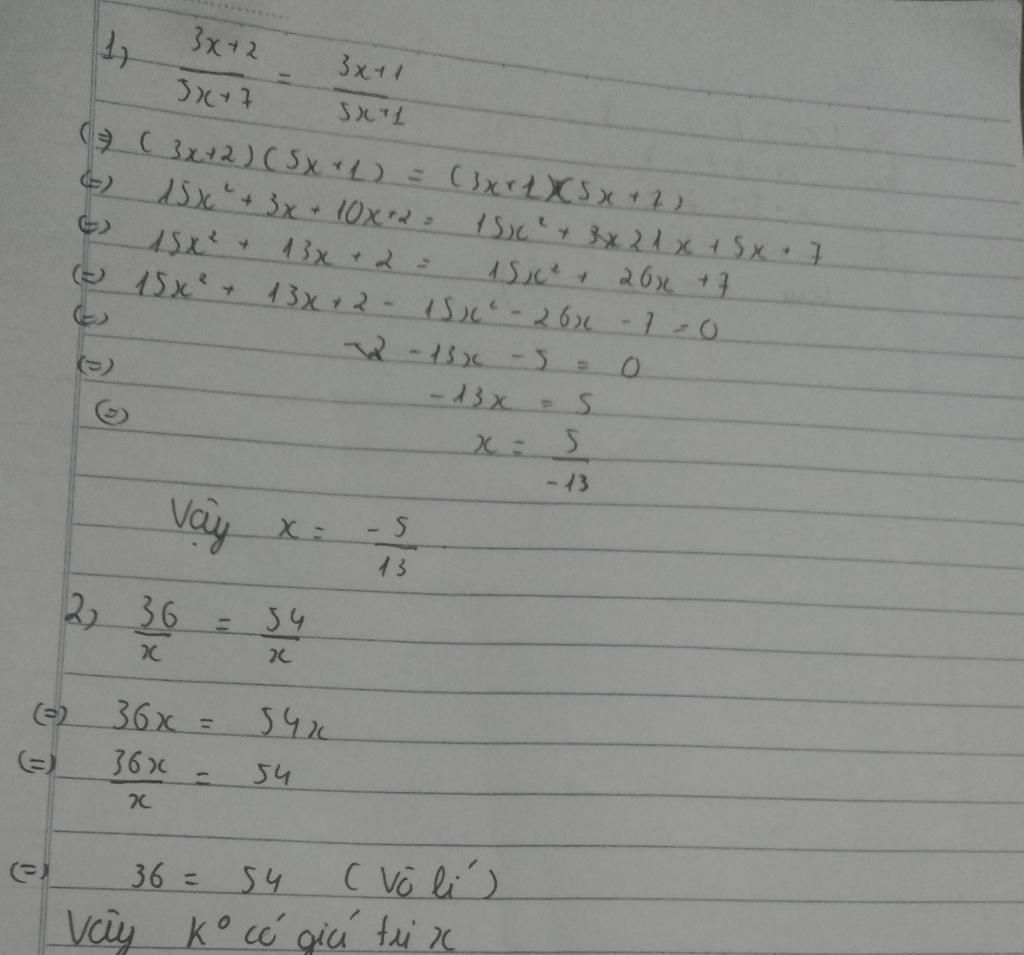 1) \frac{3x+2}{5x+7} = \frac{3x+1}{5x+1}
(=) (3x+2)(5x+1) = (3x+1)(5x+7)
(=) 15x² + 3x + 10x+2 = 15x² + 3x21x + 5x + 7
(=) 15x² + 13x + 2 = 15x² + 26x + 7
(=) 15x² + 13x + 2 - 15x² - 26x - 7 = 0
(=) -13x - 5 = 0
(=) -13x = 5
(=) x = \frac{5}{-13}
Vậy x = \frac{-5}{13}
2) \frac{36}{x} = \frac{54}{x}
(=) 36x = 54x
(=) \frac{36x}{x} = 54
(=) 36 = 54 (Vô lí)
Vây K° có giá tri x